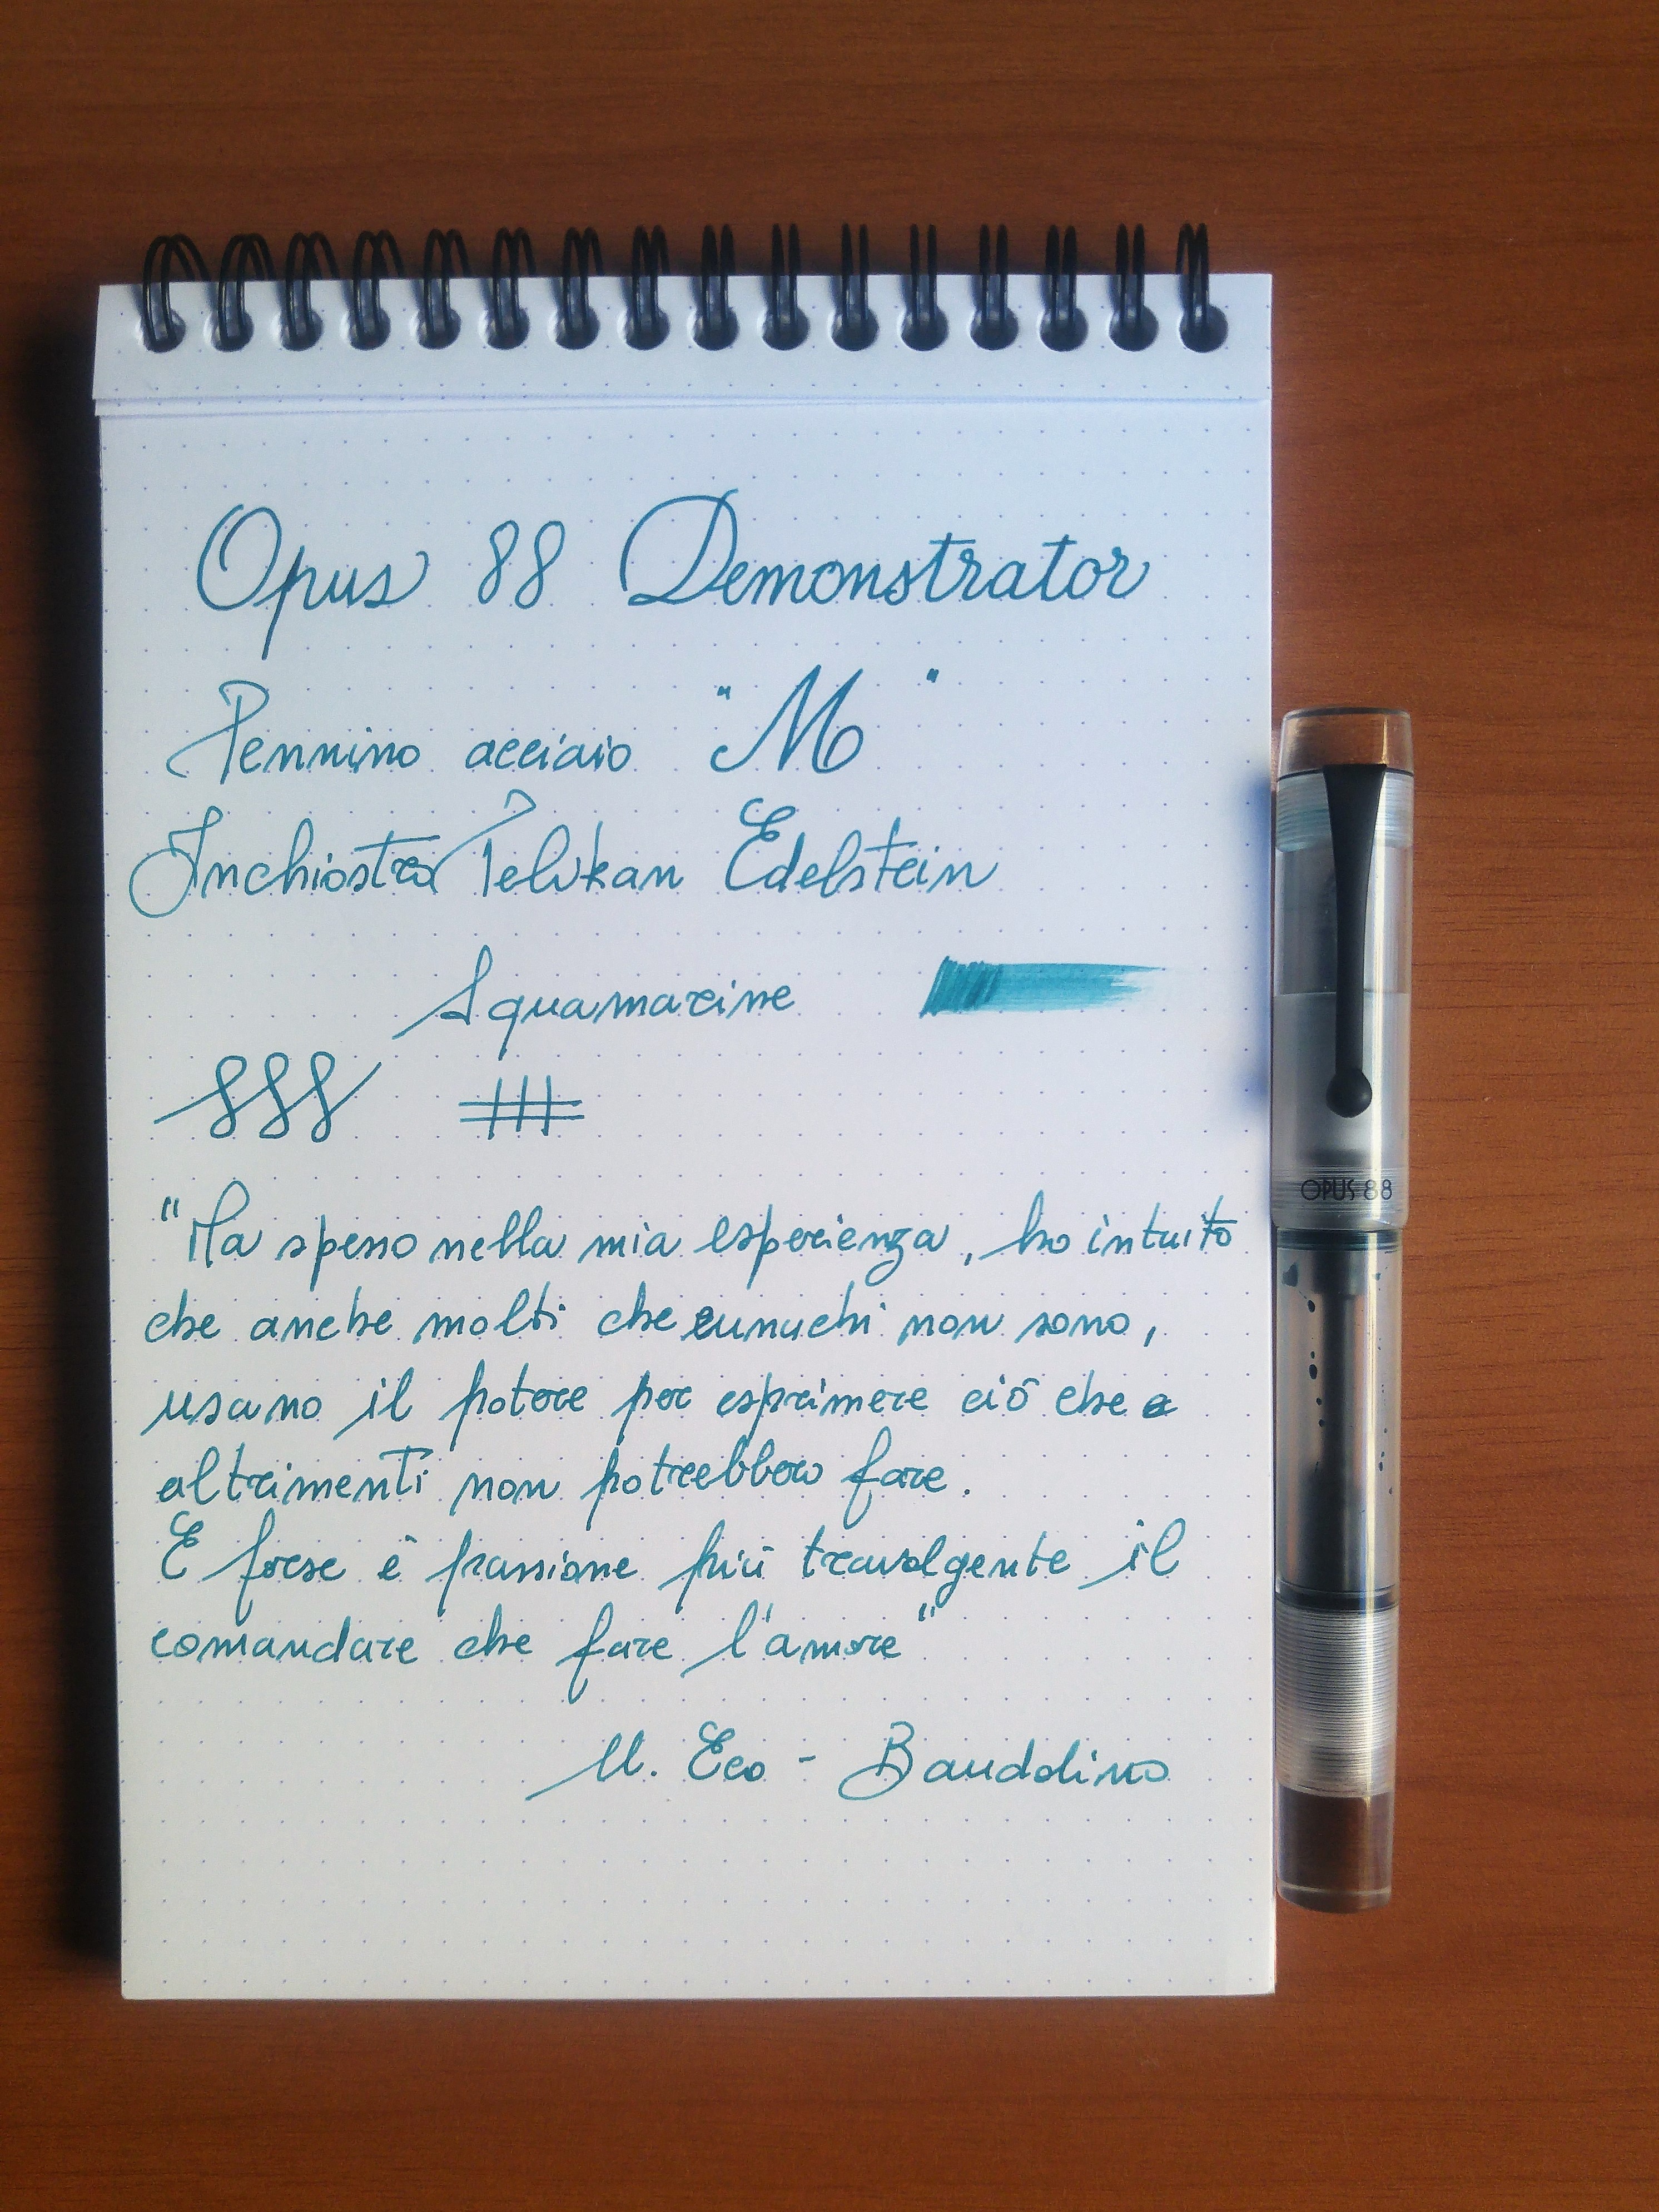 Opus 88 Demonstrator
Pennino acciaio "M"
Inchiostro Pelikan Edelstein
Aquamarine
OPUS 88
"Ma spesso nella mia esperienza, ho intuito
che anche molti che eunuchi non sono,
usano il potere per esprimere ciò che
altrimenti non potrebbero fare.
E forse è passione più travolgente il
comandare che fare l'amore"
U. Eco - Baudolino